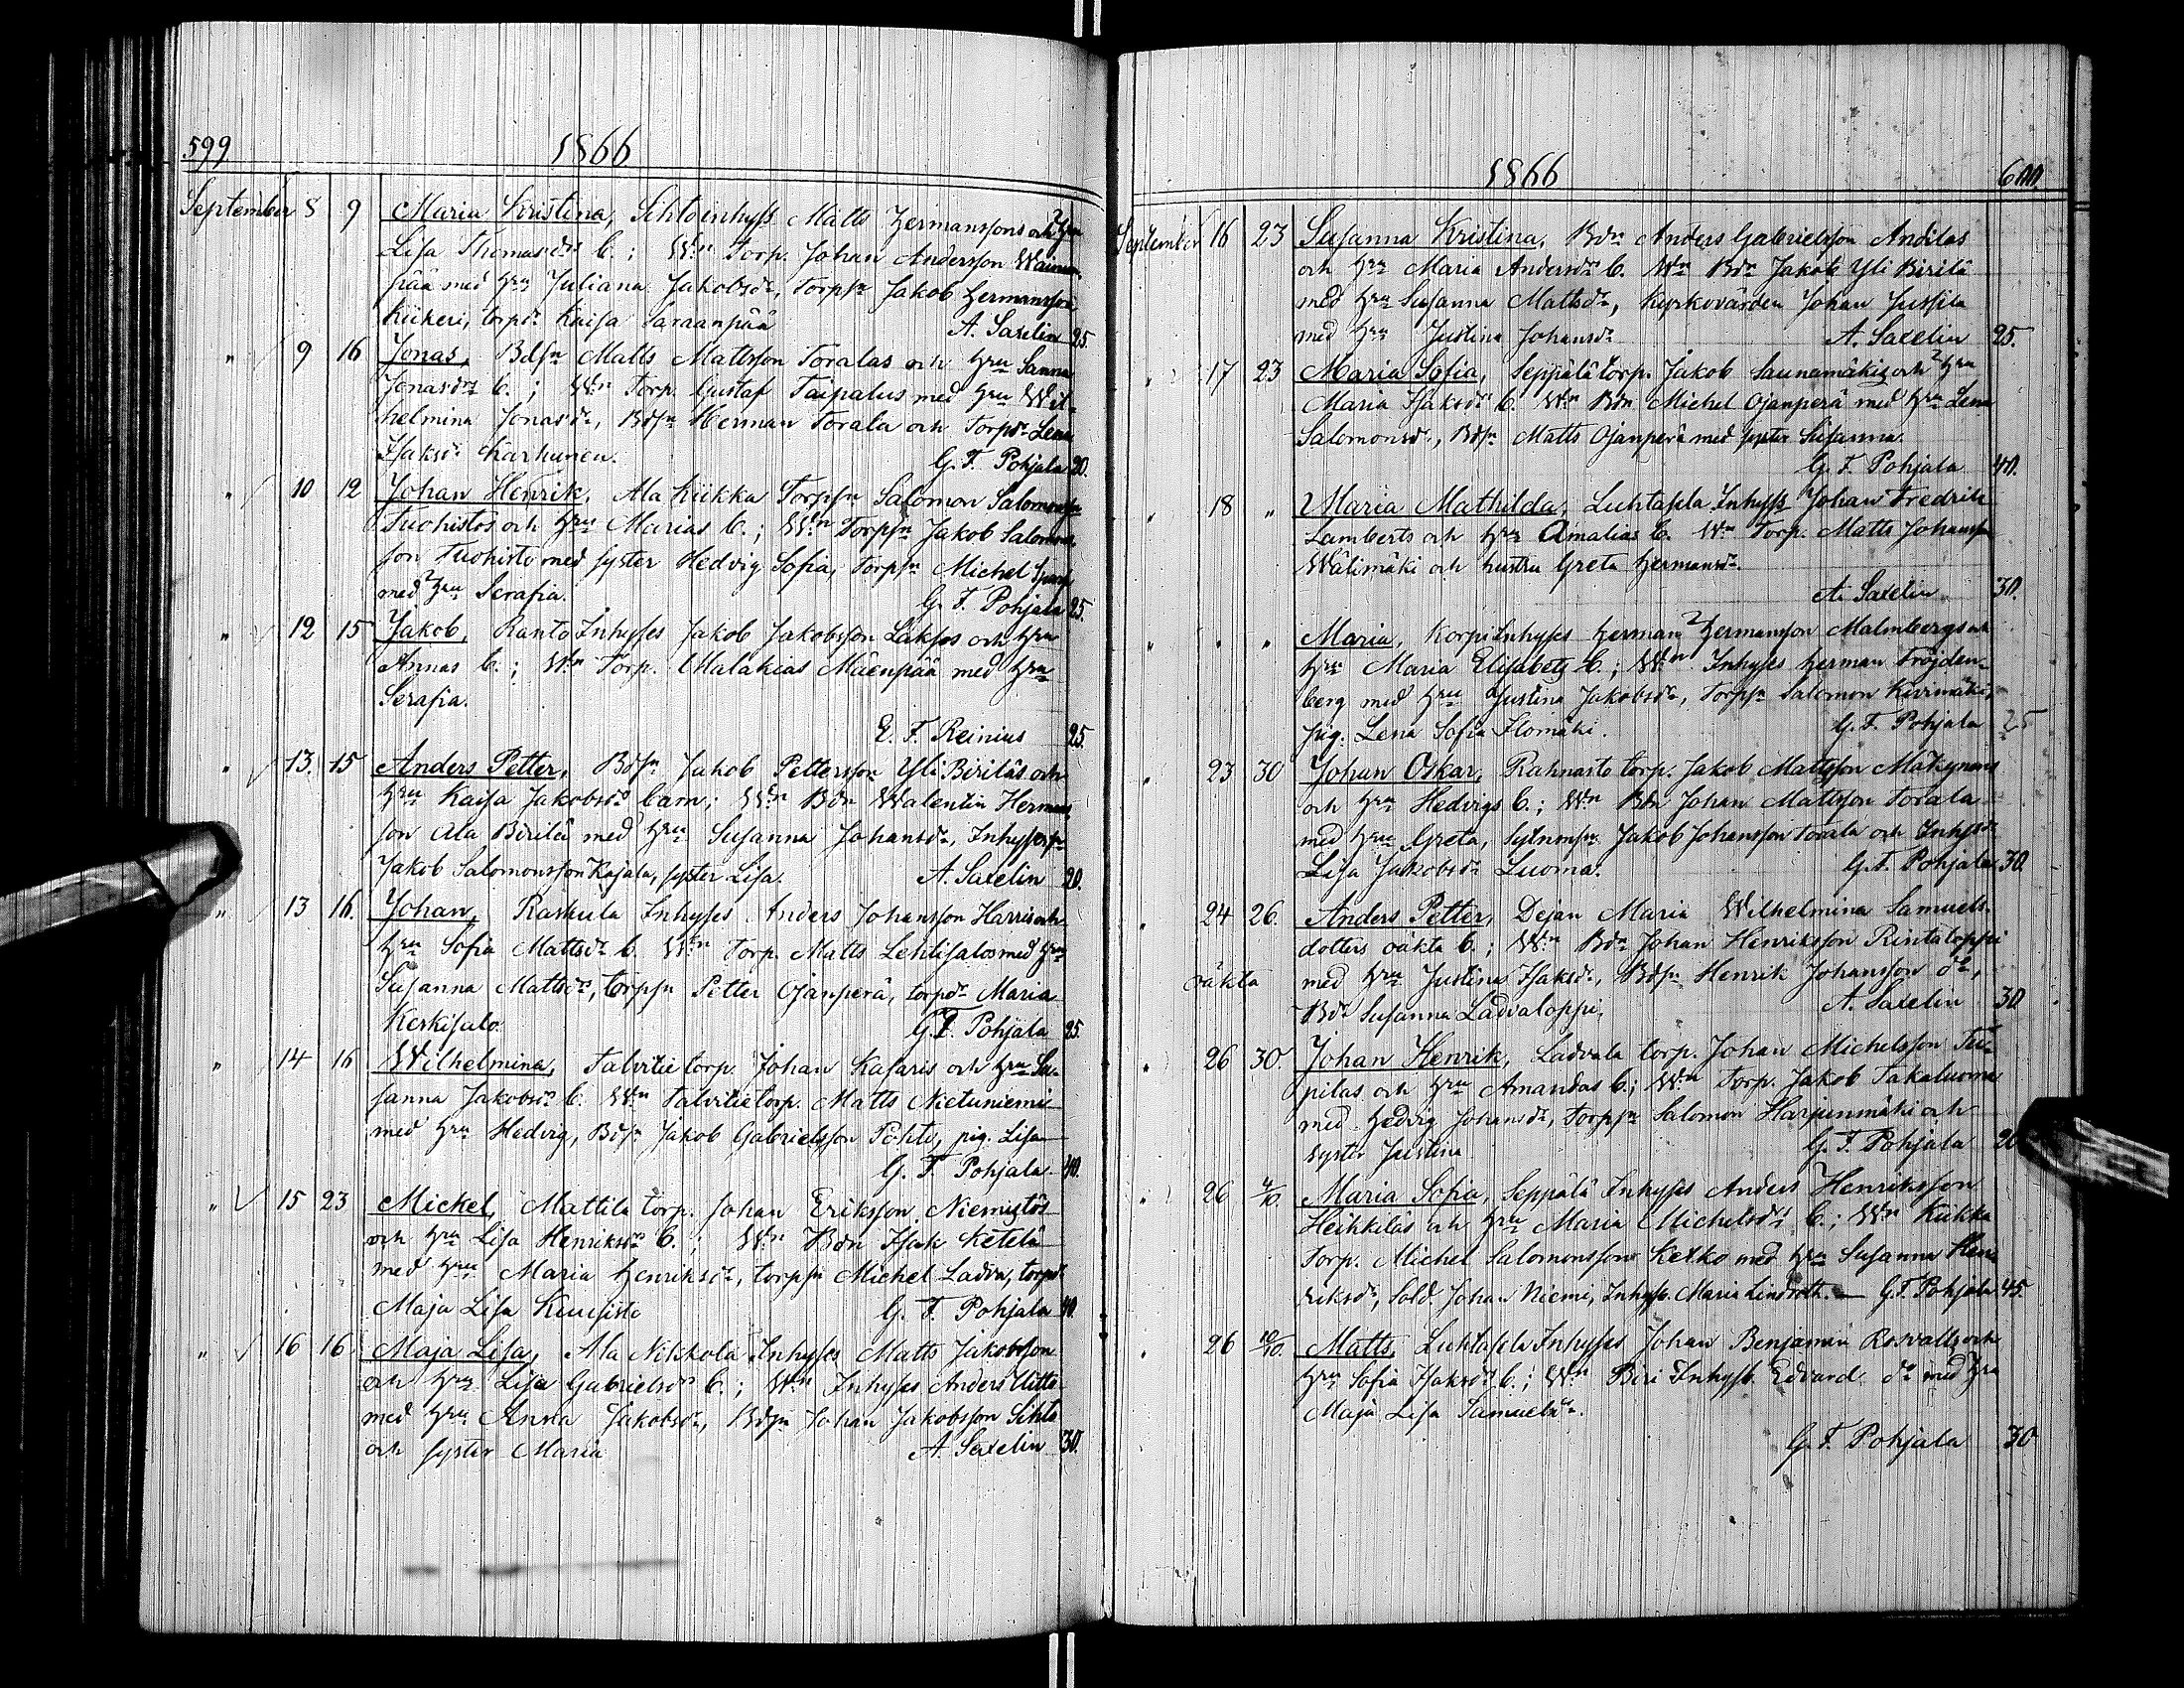 599
1866
September 8 9 Maria Kristina, Sihtoinhyss Matts Hermanssons och hru
Lisa Thomasdrs b.; Wtn Torp. Johan Andersson Wainion-
pää med hru Juliana Jakobsdr, Torpsn Jakob Hermansson
Kiikeri, torpdr Kaisa Saraanpää A. Saxelin 25.
" 9 16 Jonas, Bdsn Matts Mattsson Toralas och hru Sanna
Jonasdrs b.; Wtn Torp. Gustaf Taipalus med hru Wil-
helmina Jonasdr, Bdsn Herman Torala och Torpdr Lena
Isaksdr Karhunen. G. F. Pohjala 20.
" 10 12 Johan Henrik, Ala Kiikka Torpsn Salomon Salomonsson
Tuohistos och hru Marias b.; Wtn Torpsn Jakob Salomons-
son Tuohisto med syster Hedvig Sofia, Torpsn Michel
med hru Serafia. G. F. Pohjala 25.
" 12 15 Jakob, Ranto Inhyses Jakob Jakobsson Laksos och hru
Annas b.; Wtn Torp. Malakias Mäenpää med hru
Serafia.
E. F. Reinius 25.
" 13. 15 Anders Petter, Bdsn Jakob Pettersson Yli Biriläs och
hru Kaisa Jakobsdrs barn; Wtn Bdn Walentin Hermans-
son Ala Birilä med hru Susanna Johansdr, Inhysessn
Jakob Salomonsson Kajala, syster Lisa. A. Saxelin 20.
" 13 16. Johan, Raskula Inhyses Anders Johansson Harris och
hru Sofia Mattsdr b. Wtn Torp. Matts Lehtisalos med hru
Susanna Mattsdr, torpsn Petter Ojanperä, torpdr Maria
Keskisalo. G. F. Pohjala 25.
" 14 16 Wilhelmina, Talvitie torp. Johan Kasaris och hru Su-
sanna Jakobsdr b. Wtn Talvitie torp. Matts Nietuniemi
med hru Hedvig, Bdsn Jakob Gabrielsson Pohto, pig. Lisa
G. F. Pohjala 40.
" 15 23 Mickel, Mattila torp. Johan Eriksson Niemistös
och hru Lisa Henriksdrs b.; Wtn Bdn Isak Ketelä
med hru Maria Henriksdr, torpsn Michel Ladva, torpdr
Maja Lisa Kuusisto G. F. Pohjala 40.
" 16 16 Maja Lisa, Ala Nikkola Inhyses Matts Jakobsson
och hru Lisa Gabrielsdrs b.; Wtn Inhyses Anders Uitto
med hru Anna Jakobsdr, Bdsn Johan Jakobsson Sihto
och syster Maria A. Saxelin 30.
1866
600
September 16 23 Susanna Kristina, Bdn Anders Gabrielsson Andilas
och hru Maria Andersdr b. Wtn Bdn Jakob Yli Birilä
med hru Susanna Mattsdr, Kyrkovärden Johan Jussila
med hru Justina Johansdr A. Saxelin 25.
" 17 23 Maria Sofia, Seppälä torp. Jakob Saunamäkis och hru
Maria Isaksdr b. Wtn Bdn Michel Ojanperä med hru Lena
Salomonsdr, Bdsn Matts Ojanperä med syster Susanna.
G. F. Pohjala 40.
" 18 " Maria Mathilda, Luhtasela Inhyss Johan Fredrik
Lamberts och hru Amalias b. Wtn Torp. Matts Johansson
Wälimäki och hustru Greta Hermansdr.
A. Saxelin 30.
" " " Maria, Korpi Inhyses Herman Hermansson Malmbergs och
hru Maria Elisabets b.; Wtn Inhyses Herman Fröjden-
berg med hru Justina Jakobsdr, Torpsn Salomon Kivimäki,
pig. Lena Sofia Ilomäki. G. F. Pohjala 25
" 23 30 Johan Oskar, Rahnasto torp. Jakob Mattsson Mäkynens
och hru Hedvigs b.; Wtn Bdn Johan Mattsson Torala
med hru Greta, Sytnmsn Jakob Johansson Torala och Inhysdr
Lisa Jakobsdr Luoma. G. F. Pohjala 30.
" 24 26. Anders Petter, Dejan Maria Wilhelmina Samuels-
dotters oäkta b.; Wtn Bdn Johan Henriksson Rintaloppi
oäkta med hru Justina Isaksdr, Bdsn Henrik Johansson do,
Bdr Susanna Ladvaloppi. A. Saxelin 30
" 26 30. Johan Henrik, Ladvala torp. Johan Michelsson Tii-
pilas och hru Amandas b.; Wtn Torp. Jakob Takaluoma
med Hedvig Johansdr, Torpsn Salomon Harjunmäki och
syster Justina G. F. Pohjala 20
" 26 4/10. Maria Sofia, Seppälä Inhyses Anders Henriksson
Heikkiläs och hru Maria Michelsdrs b.; Wtn Kiikka
Torp. Michel Salomonsson Ketko med hru Susanna Hen-
riksdr, Sold. Johan Niemi, Inhysp. Maria Lindroth. — G. F. Pohjala 45.
" 26 10/10. Matts, Luhtasela Inhyses Johan Benjamin Rosvalls och
hru Sofia Isaksdrs b.; Wtn Biri Inhysb. Edvard do med hru
Maja Lisa Samuelsdr.
G. F. Pohjala 30